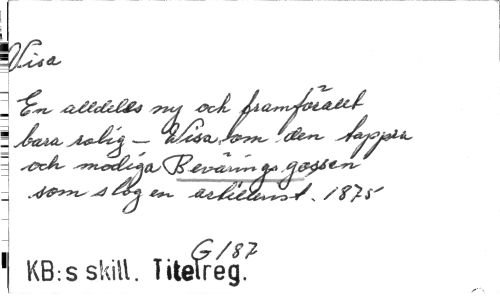 Visa
En alldeles ny och framförallt
bara rolig – Visa om den tappra
och modiga Bevärings gossen
som slog en artillerist. 1875
G 187
KB:s skill. Titelreg.